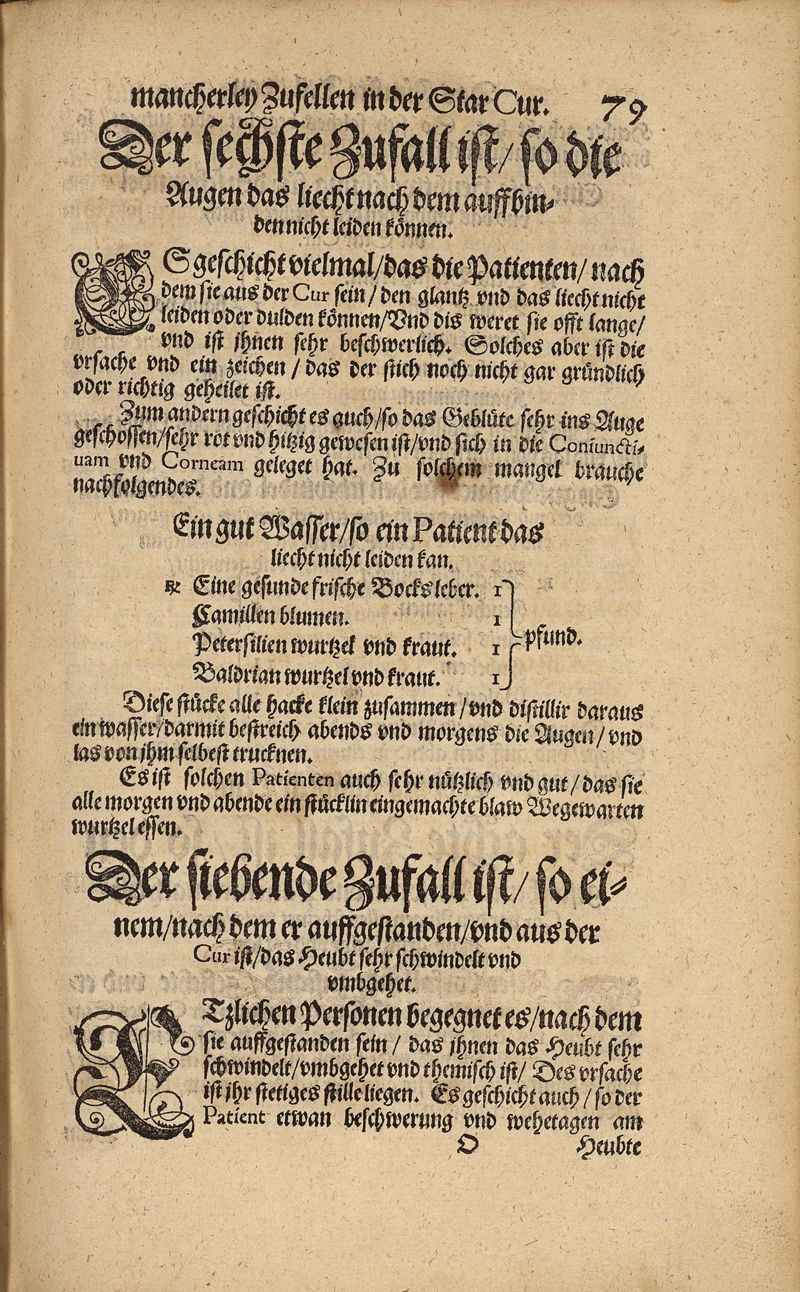 mancherley Zufellen in der Star Cur. 79
Der sechste Zufall ist/ so die
Augen das liecht nach dem auffbin-
den nicht leiden können.
ES geschicht vielmal/das die Patienten/ nach
dem sie aus der Cur sein/ den glantz vnd das liecht nicht
leiden oder dulden können/Vnd dis weret sie offt lange/
vnd ist jhnen sehr beschwerlich. Solches aber ist die
vrsache vnd ein zeichen / das der stich noch nicht gar gründlich
oder richtig geheilet ist.
Zum andern geschicht es auch/so das Geblüte sehr ins Auge
geschossen/sehr rot vnd hitzig gewesen ist/vnd sich in die Coniuncti-
uam vnd Corneam geleget hat. Zu solchem mangel brauche
nachfolgendes.
Ein gut Wasser/so ein Patient das
liecht nicht leiden kan.
℞ Eine gesunde frische Bocksleber. 1
Camillen blumen. 1
Petersilien wurtzel vnd kraut. 1 pfund.
Baldrian wurtzel vnd kraut. 1
Diese stücke alle hacke klein zusammen /vnd distillir daraus
ein wasser/darmit bestreich abends vnd morgens die Augen/ vnd
las von jhm selbest trucknen.
Es ist solchen Patienten auch sehr nützlich vnd gut/ das sie
alle morgen vnd abende ein stücklin eingemachte blaw Wegewarten
wurtzel essen.
Der siebende Zufall ist/ so ei-
nem/nach dem er auffgestanden/vnd aus der
Cur ist/das Heubt sehr schwindelt vnd
vmbgehet.
ETzlichen Personen begegnet es/nach dem
sie auffgestanden sein/ das jhnen das Heubt sehr
schwindelt/vmbgehet vnd themisch ist/ Des vrsache
ist jhr stetiges stille liegen. Es geschicht auch/ so der
Patient etwan beschwerung vnd wehetagen am
O Heubte